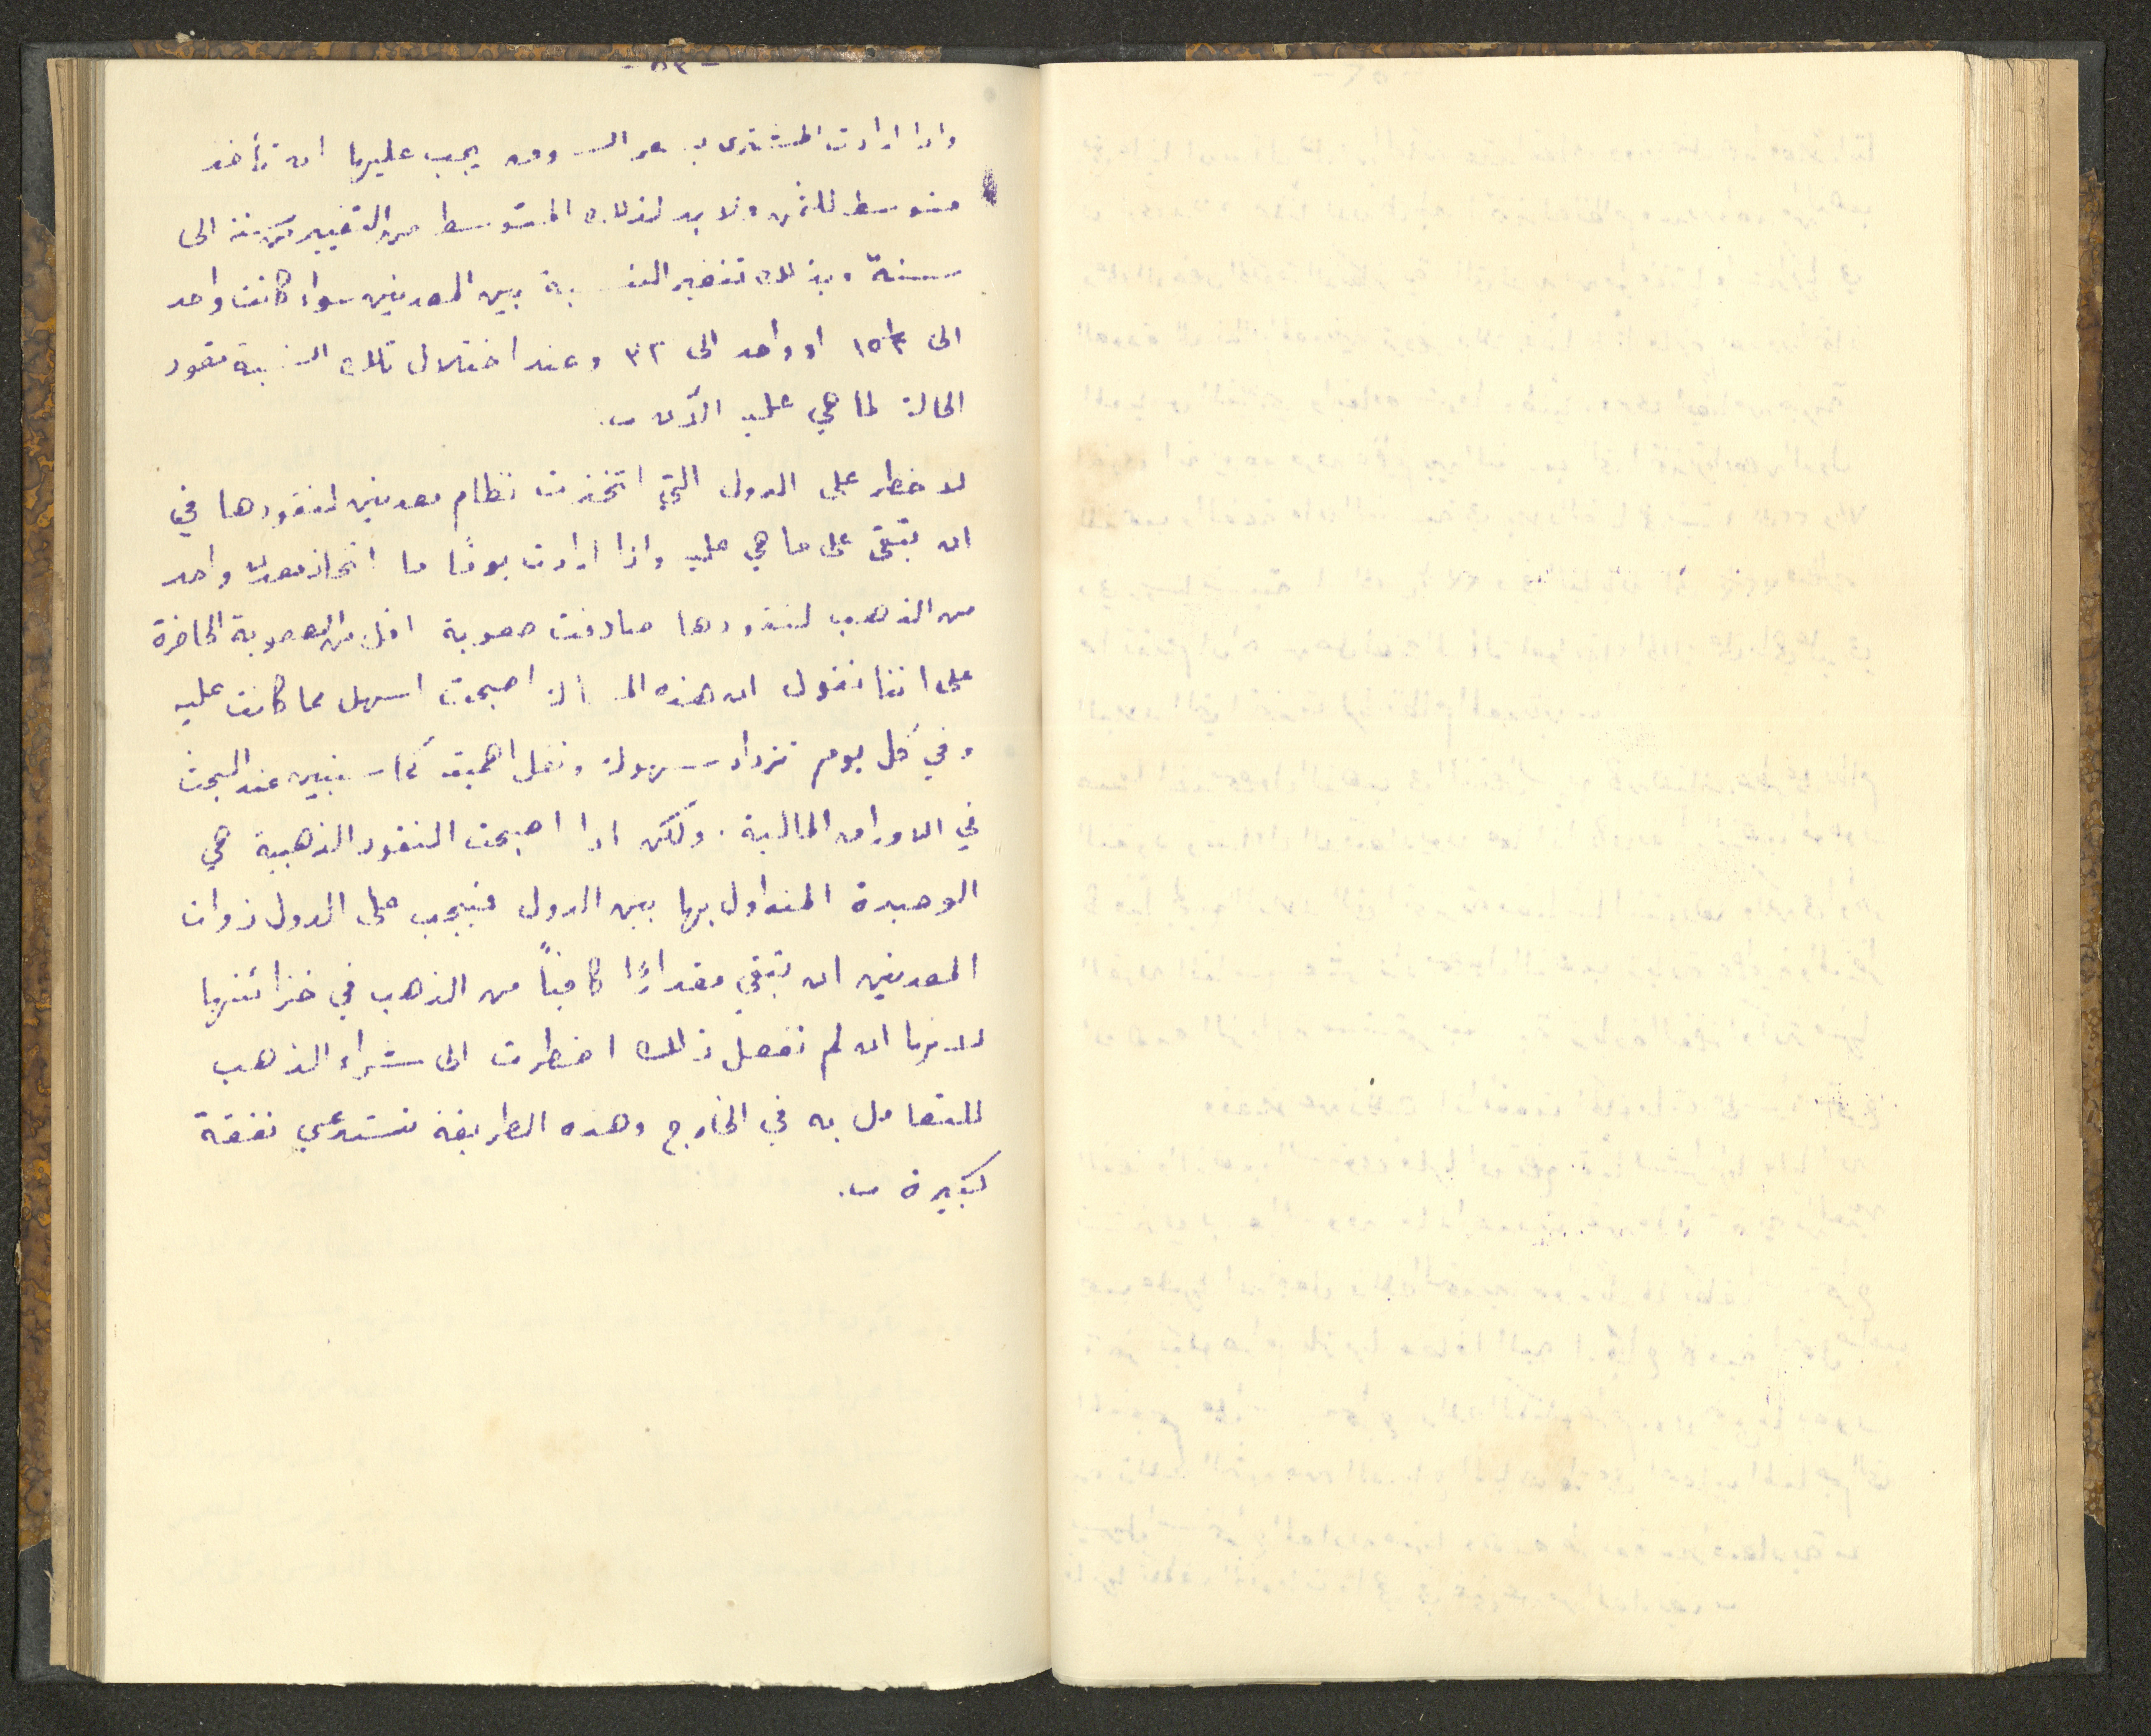 - ٨٣ -
واذا ارادت المشترى بسعر السوق يجب عليها ان تأخذ
متوسط للثمن ولا بد لذلك المتوسط من التغيير من سنة الى
سنة وبذلك تتغير النسبة بين المعدنين سواء كانت واحد
الى ١٥½ او واحد الى ٣٢ وعند اختلال تلك النسبة تعود
الحالة لما هي عليه الآن .
لا خطر على الدول التي اتخذت نظام معدنين لنقودها في
ان تبقى على ما هي عليه واذا ارادت يومًا ما اتخاذ معدن واحد
من الذهب لنقودها صادفت صعوبة اقل من الصعوبة الحاضرة
على اننا نقول ان هذه المسألة اصبحت اسهل مما كانت عليه
وفي كل يوم تزداد سهولة وتقل اهميته كما سنبين عند البحث
في الاوراق المالية . ولكن اذا اصبحت النقود الذهبية هي
الوحيدة المتداول بها بين الدول فيجب على الدول ذوات
المعدنين ان تبقي مقدارًا كافيًا من الذهب في خزائنها
لانها ان لم تفعل ذلك اضطرت الى شراء الذهب
للتعامل به في الخارج وهذه الطريقة تستدعي نفقة
كبيرة .